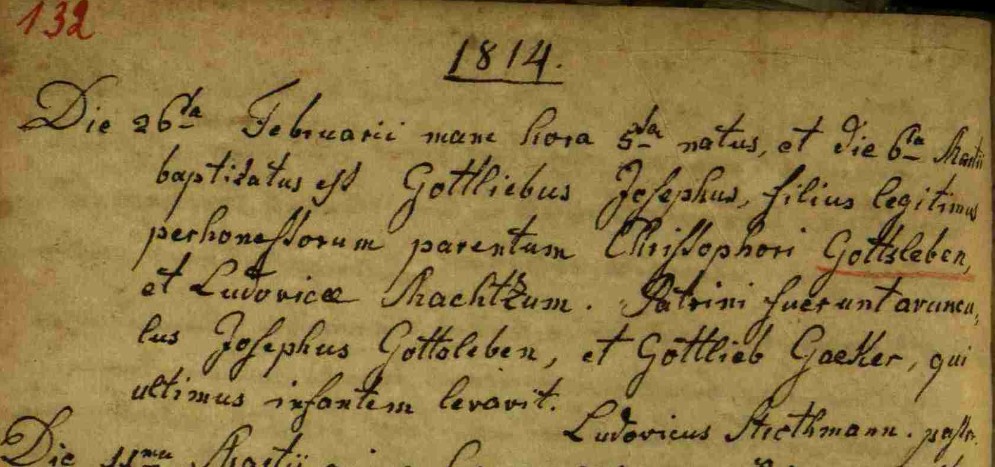 132
1814.
Die 26ta Februarii mane hora 5ta natus, et die 6ta Martii
baptizatus est Gottliebus Josephus, filius legitimus
perhonestorum parentum Christophori Gottsleben,
et Ludovicæ Machtzum. Patrini fuerunt avuncu,
lus Josephus Gottsleben, et Gottlieb Goeker, qui
ultimus infantem levavit.
Ludovicus Stuthmann. pastor.
Die 11ma Martii